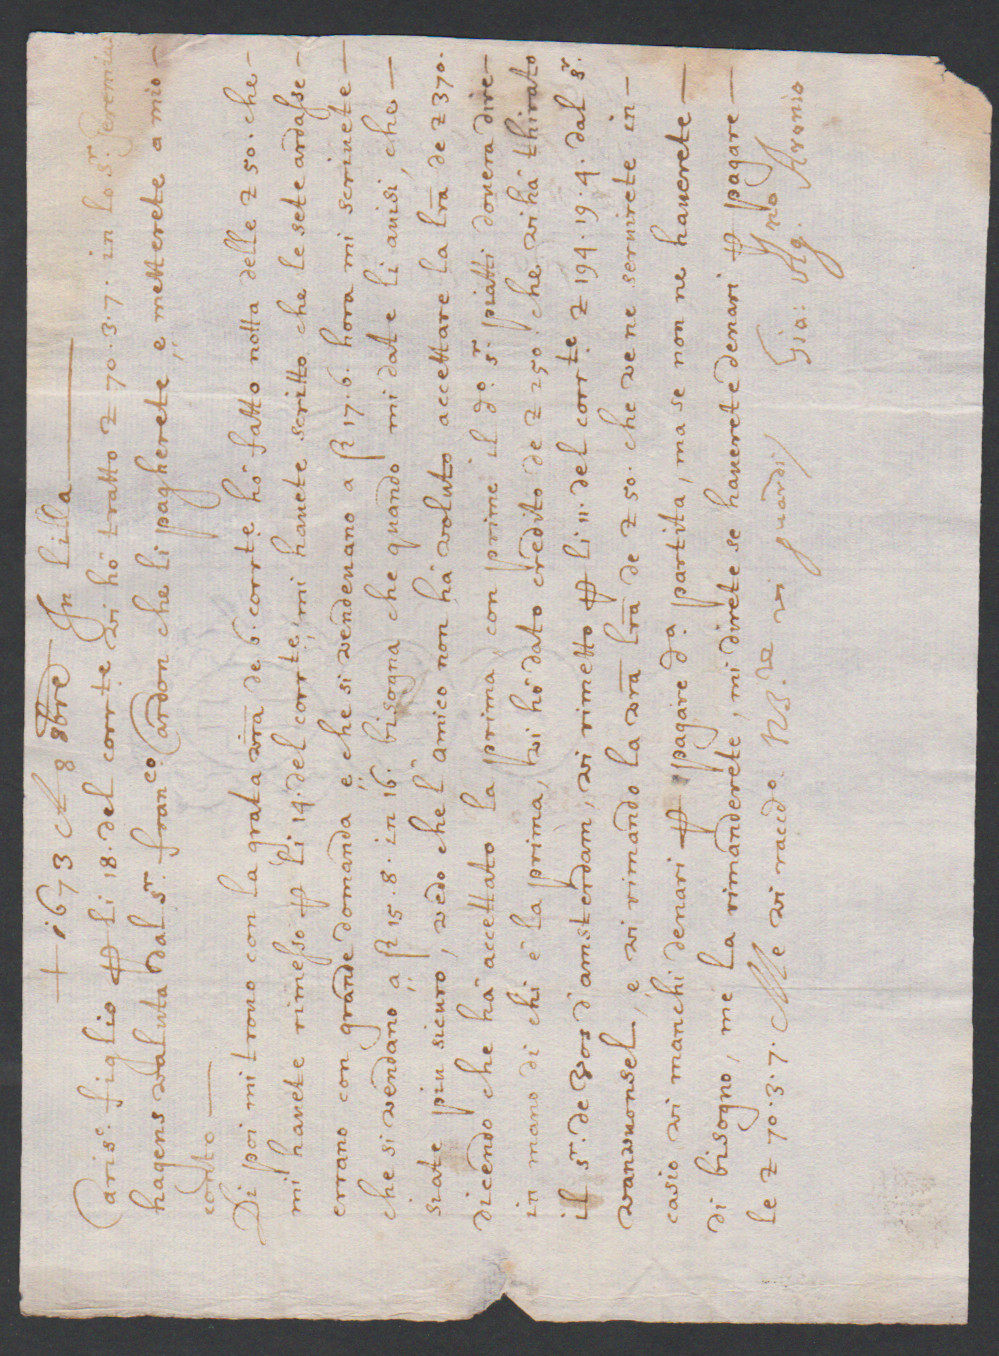 + 1673 A 8 8bre In Lilla
Cariso. figlio p li 18. del corrte vi hò tratto £ 70.3.7. in lo sr. Jeremia
hagens valuta dal sr. franco. Cardon che li pagherete, e metterete a mio
conto
Di poi mi trovo con la grata vrã de 6. corrte hò fatto notta delle £ 50. che
mi havete rimesso p li 14. del corrte, mi havete scritto che le sete ardasse
errano con grande domanda e che si vendevano a ß 17.6. hora mi scrivete
che si vendano a ß 15.8. in 16. bisogna che quando mi date li avisi, che
siate piu sicuro, vedo che l'amico non hà voluto accettare la lrã de £ 370.
dicendo che hà accettato la prima, con prime il do. sr. piatti dovera dire
in mano di chi è la prima, vi hò dato credito de £ 250. che vi hà thirato
il sr. de Vos d'amsterdam, vi rimetto p li 11. del corrte £ 194.19.4. dal sr.
vanwonsel, e vi rimando la vrã lrã de £ 50. che ve ne servirete in
casio vi manchi denari p pagare da. partita, ma se non ne haverete
di bisogno, me la rimanderete, mi direte se haverete denari p pagare
le £ 70.3.7. Me vi racdo. NB. Da vi guardi
Gia: Ag. Aronio